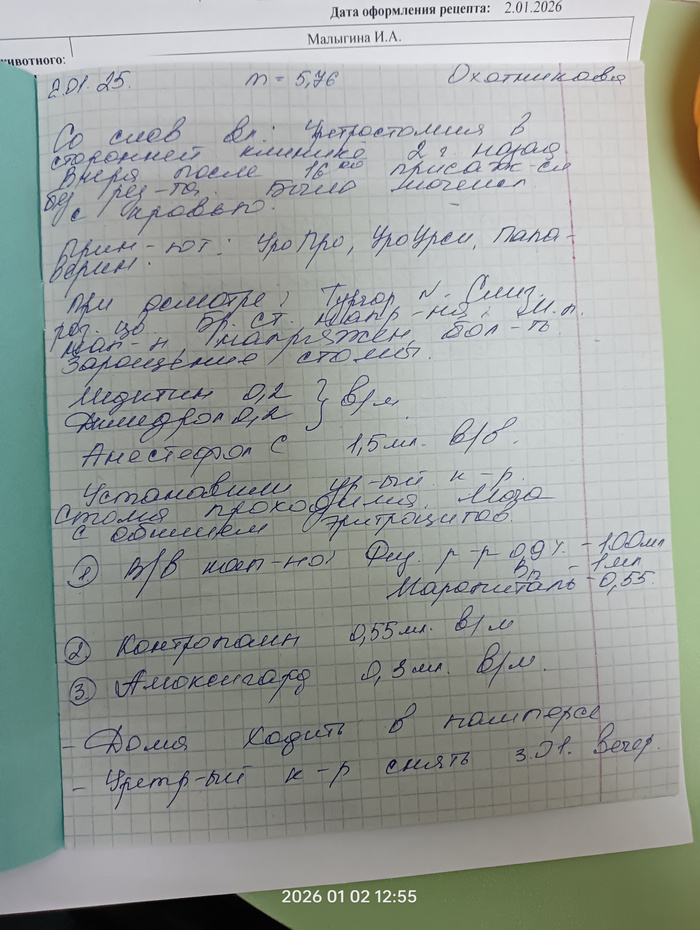 Дата оформления рецепта: 2.01.2026
Малыгина И.А.
животного:
2.01.25. m = 5,76 Охотникова
Со слов вл: Уретростомия в
сторонней клинике 2 г. назад.
Вчера после 16 00 присаж-ся
без рез-та. Было мочеисп.
с кровью.
Прин-ют: УроПро, УроУрси, Папа-
верин.
При осмотре: Тургор N. Слиз.
роз. цв. Бр. ст. напр-на. М.п.
нап-н, напряжен, бол-ть.
Заращение стомы.
Медитин 0,2 } в/м
Димедрол 0,2
Анестефол С 1,5 мл. в/в.
Установили ур-ый к-р.
Стома проходима. Моча
с обилием эритроцитов.
① В/в кап-но: Физ. р-р 0,9% - 100мл
B12 - 1мл
Маропиталь - 0,55.
② Контропаин 0,55мл. в/м
③ Амоксигард 0,3мл. в/м.
- Дома ходить в памперсе
- Уретр-ый к-р снять 3.01. вечер.
2026 01 02 12:55